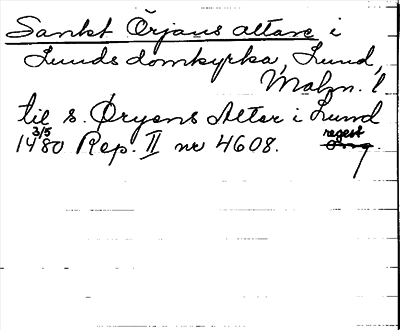 Sankt Örjans altare i
Lunds domkyrka, Lund,
Malm. l
til s. Øryens Alter i Lund
3/5 regest
1480 Rep. II nr 4608. Orig.